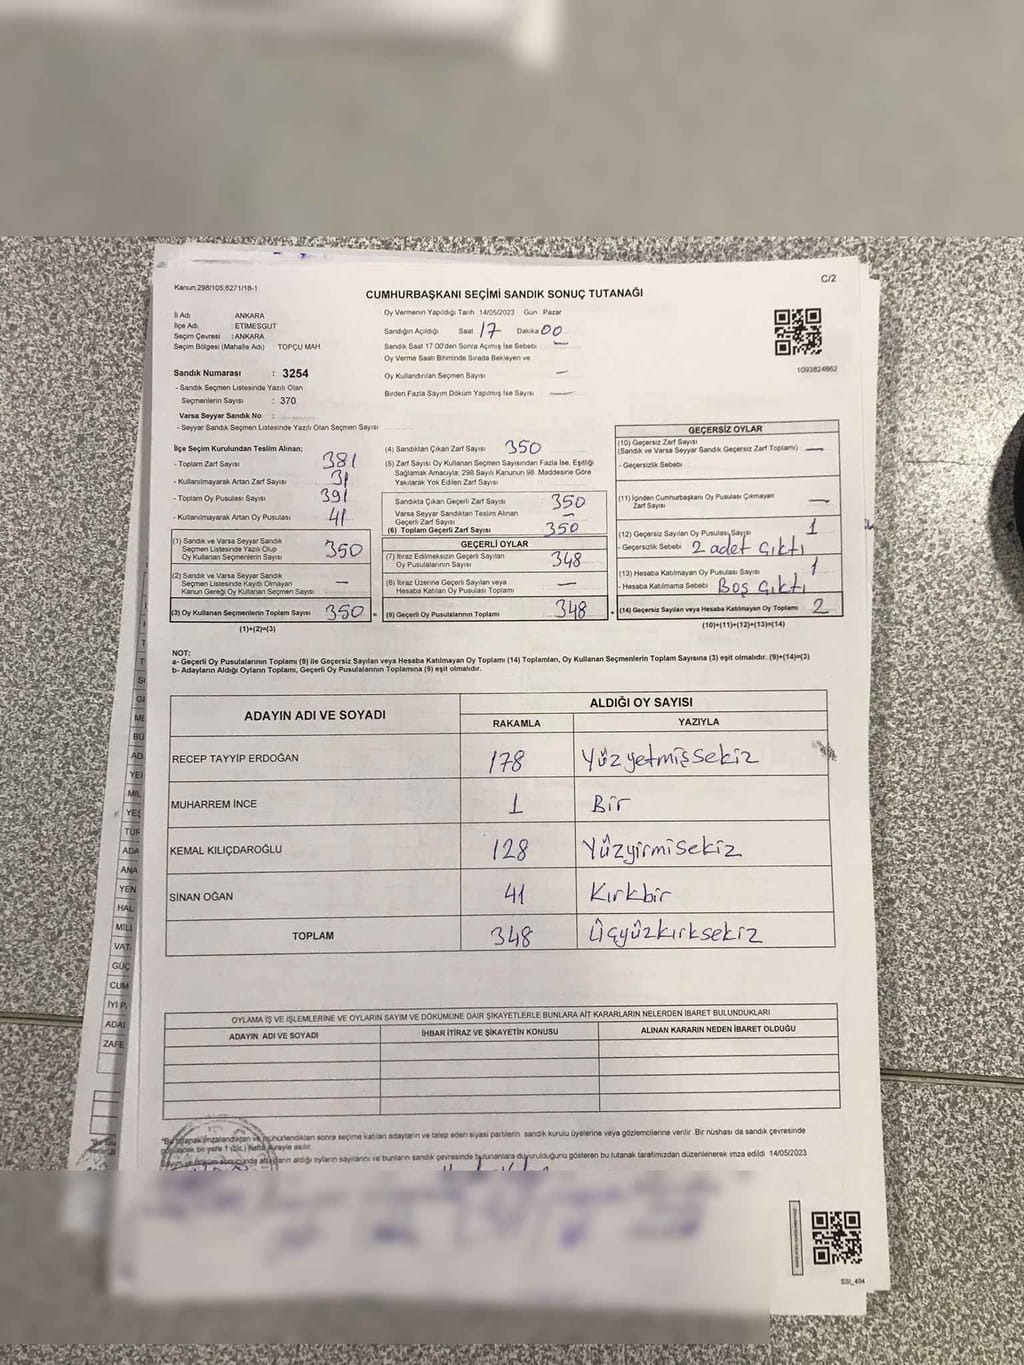 Kanun:298/105,6271/18-1
C/2
CUMHURBAŞKANI SEÇİMİ SANDIK SONUÇ TUTANAĞI
İl Adı ANKARA
İlçe Adı : ETİMESGUT
Seçim Çevresi : ANKARA
Seçim Bölgesi (Mahalle Adı) TOPÇU MAH
Sandık Numarası : 3254
- Sandık Seçmen Listesinde Yazılı Olan
Seçmenlerin Sayısı : 370
Varsa Seyyar Sandık No :
- Seyyar Sandık Seçmen Listesinde Yazılı Olan Seçmen Sayısı
Oy Vermenin Yapıldığı Tarih 14/05/2023 Gün Pazar
Sandığın Açıldığı Saat 17 Dakika 00
Sandık Saat 17.00'den Sonra Açımış İse Sebebi —
Oy Verme Saati Bitiminde Sırada Bekleyen ve
Oy Kullandırılan Seçmen Sayısı —
Birden Fazla Sayım Döküm Yapılmış İse Sayısı —
1093824662
İlçe Seçim Kurulundan Teslim Alınan;
- Toplam Zarf Sayısı 381
- Kullanılmayarak Artan Zarf Sayısı 31
- Toplam Oy Pusulası Sayısı 391
- Kullanılmayarak Artan Oy Pusulası 41
(1) Sandık ve Varsa Seyyar Sandık
Seçmen Listesinde Yazılı Olup
Oy Kullanan Seçmenlerin Sayısı 350
(2) Sandık ve Varsa Seyyar Sandık
Seçmen Listesinde Kayıtlı Olmayan
Kanun Gereği Oy Kullanan Seçmen Sayısı —
(3) Oy Kullanan Seçmenlerin Toplam Sayısı 350 =
(1)+(2)=(3)
(4) Sandıktan Çıkan Zarf Sayısı 350
(5) Zarf Sayısı Oy Kullanan Seçmen Sayısından Fazla İse, Eşitliği
Sağlamak Amacıyla; 298 Sayılı Kanunun 98. Maddesine Göre
Yakılarak Yok Edilen Zarf Sayısı
Sandıkta Çıkan Geçerli Zarf Sayısı 350
Varsa Seyyar Sandıktan Teslim Alınan
Geçerli Zarf Sayısı —
(6) Toplam Geçerli Zarf Sayısı 350
GEÇERLİ OYLAR
(7) İtiraz Edilmeksizin Geçerli Sayılan
Oy Pusulalarının Sayısı 348
(8) İtiraz Üzerine Geçerli Sayılan veya
Hesaba Katılan Oy Pusulaları Toplamı —
(9) Geçerli Oy Pusulalarının Toplamı 348 +
GEÇERSİZ OYLAR
(10) Geçersiz Zarf Sayısı
(Sandık ve Varsa Seyyar Sandık Geçersiz Zarf Toplamı) —
- Geçersizlik Sebebi
(11) İçinden Cumhurbaşkanı Oy Pusulası Çıkmayan
Zarf Sayısı —
(12) Geçersiz Sayılan Oy Pusulası Sayısı 1
- Geçersizlik Sebebi 2 adet çıktı
(13) Hesaba Katılmayan Oy Pusulası Sayısı 1
- Hesaba Katılmama Sebebi Boş Çıktı
(14) Geçersiz Sayılan veya Hesaba Katılmayan Oy Toplamı 2
(10)+(11)+(12)+(13)=(14)
NOT:
a- Geçerli Oy Pusulalarının Toplamı (9) ile Geçersiz Sayılan veya Hesaba Katılmayan Oy Toplamı (14) Toplamları, Oy Kullanan Seçmenlerin Toplam Sayısına (3) eşit olmalıdır. (9)+(14)=(3)
b- Adayların Aldığı Oyların Toplamı, Geçerli Oy Pusulalarının Toplamına (9) eşit olmalıdır.
ADAYIN ADI VE SOYADI
ALDIĞI OY SAYISI
RAKAMLA YAZIYLA
RECEP TAYYİP ERDOĞAN 178 Yüzyetmişsekiz
MUHARREM İNCE 1 Bir
KEMAL KILIÇDAROĞLU 128 Yüzyirmisekiz
SİNAN OĞAN 41 Kırkbir
TOPLAM 348 Üçyüzkırksekiz
OYLAMA İŞ VE İŞLEMLERİNE VE OYLARIN SAYIM VE DÖKÜMÜNE DAİR ŞİKAYETLERLE BUNLARA AİT KARARLARIN NELERDEN İBARET BULUNDUKLARI
ADAYIN ADI VE SOYADI İHBAR İTİRAZ VE ŞİKAYETİN KONUSU ALINAN KARARIN NEDEN İBARET OLDUĞU
"Bu tutanak imzalandıktan ve mühürlendikten sonra seçime katılan adayların ve talep eden siyasi partilerin sandık kurulu üyelerine veya gözlemcilerine verilir .Bir nüshası da sandık çevresinde
bir yere 1 (bir) hafta süreyle asılır.
aldığı oyların sayılarını ve bunların sandık çevresinde bulunanlara duyurulduğunu gösteren bu tutanak tarafımızdan düzenlenerek imza edildi 14/05/2023
SSI_404